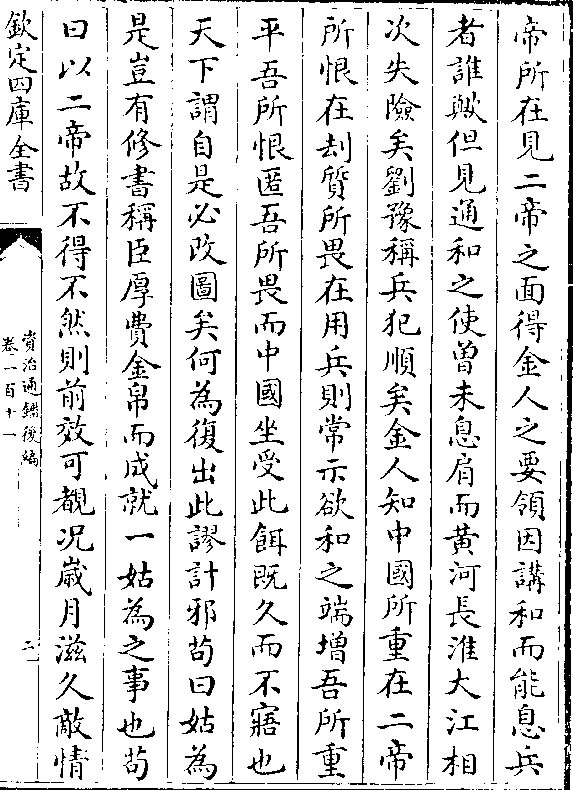 帝所在見二帝之面得金人之要領因講和而能息兵
者誰歟但見通和之使曾未息肩而黄河長淮大江相
次失險矣劉豫稱兵犯順矣金人知中國所重在二帝
所恨在刦質所畏在用兵則常示欲和之端增吾所重
平吾所恨匿吾所畏而中國坐受此餌既久而不寤也
天下謂自是必改圖矣何為復出此謬計邪苟曰姑為
是豈有修書稱臣厚費金帛而成就一姑為之事也苟
曰以二帝故不得不然則前效可覩况歳月滋久敵情
欽定四庫全書
資治通鑑後編
卷一百十一
二